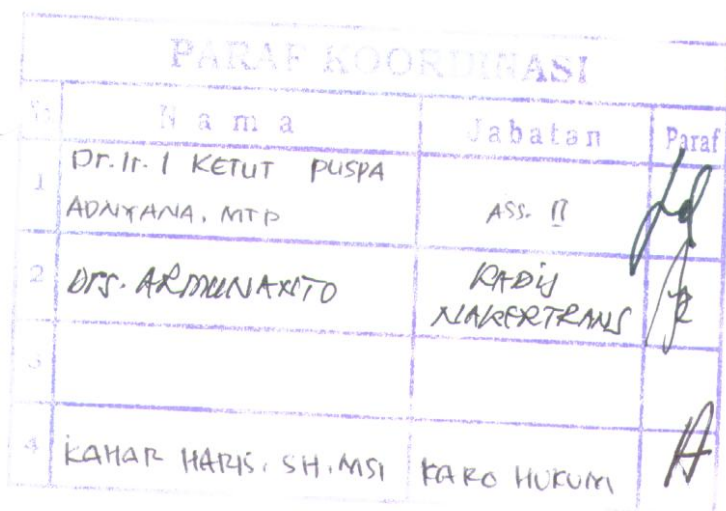 PARAF KOORDINASI
No Nama Jabatan Paraf
1 Dr. Ir. I KETUT PUSPA
ADNYANA, MTP ASS. II
2 Drs. ARMUNANTO KADIS
NAKERTRANS
3
4 KAHAR HARIS, SH, MSI KARO HUKUM